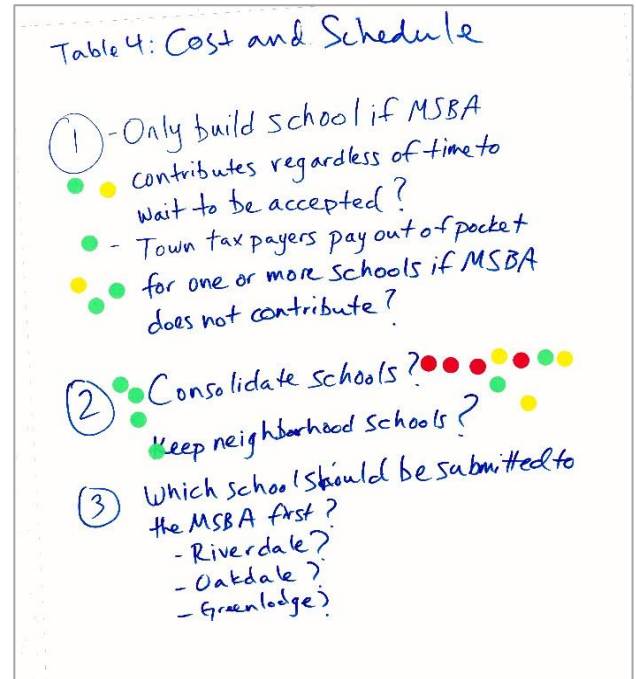 Table 4: Cost and Schedule
1 - Only build school if MSBA
contributes regardless of time to
wait to be accepted?
- Town tax payers pay out of pocket
for one or more schools if MSBA
does not contribute?
2 Consolidate schools?
Keep neighborhood schools?
3 Which school should be submitted to
the MSBA first?
- Riverdale?
- Oakdale?
- Greenlodge?